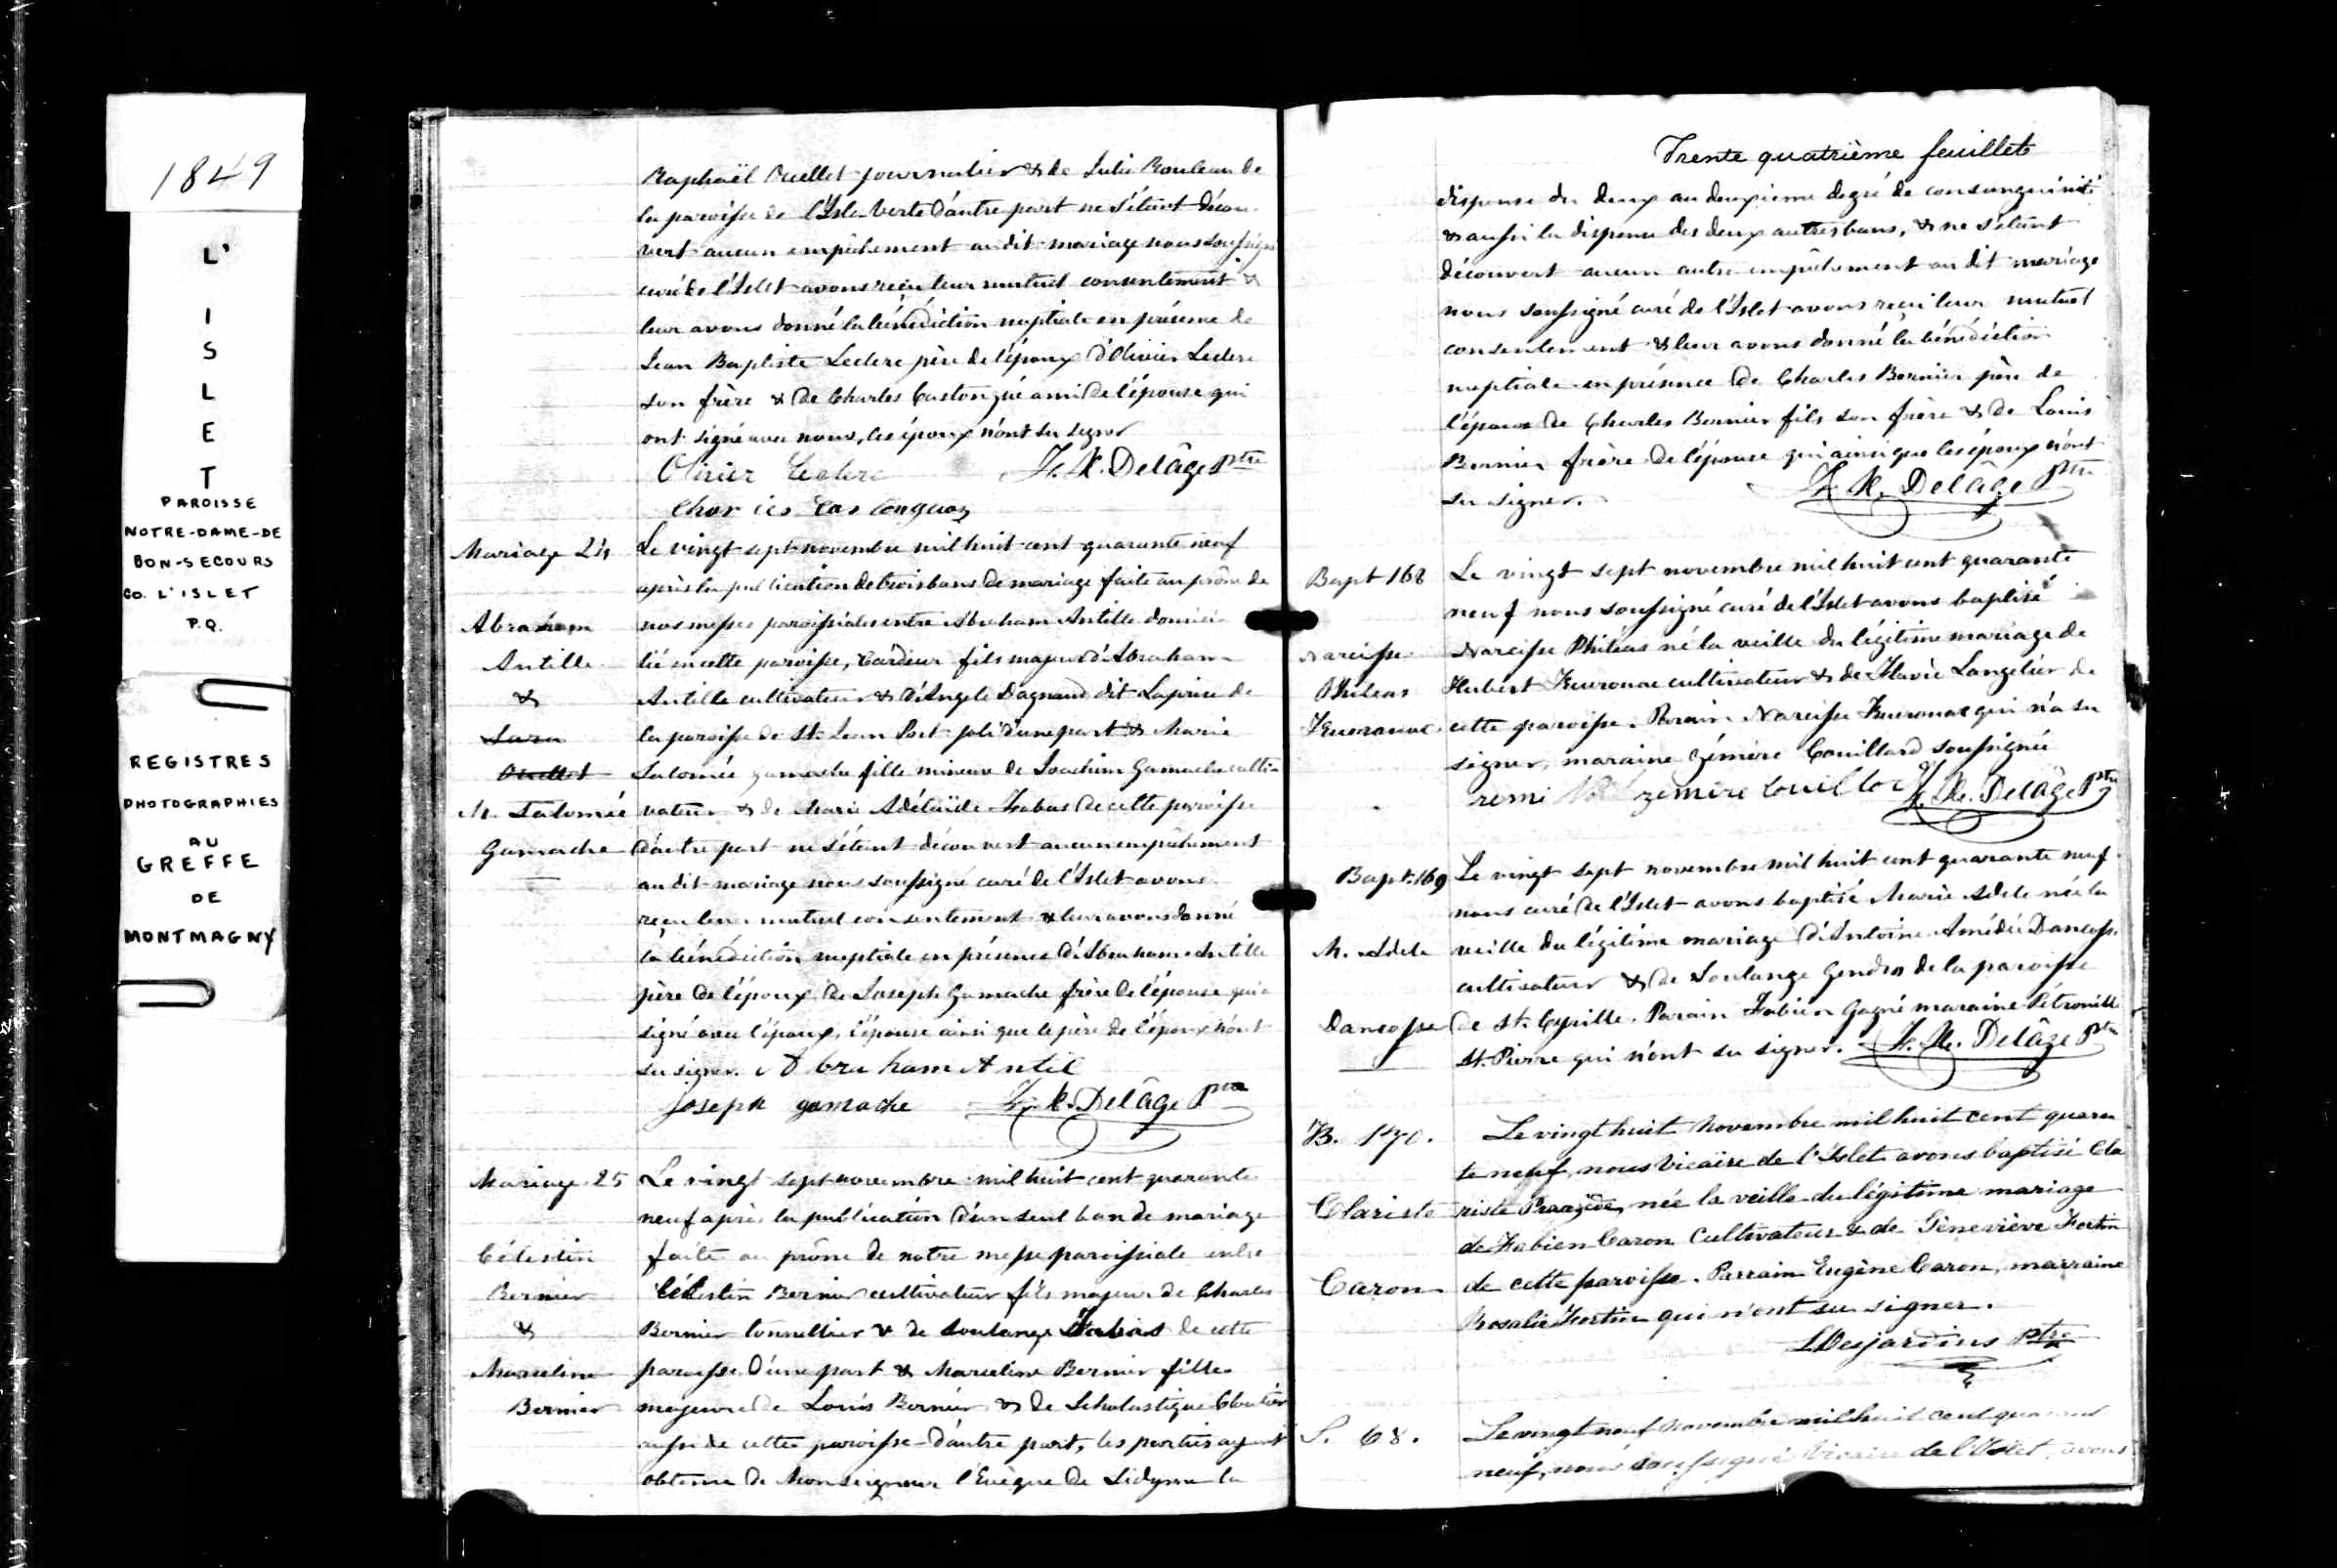 1849
L'
I
S
L
E
T
PAROISSE
NOTRE-DAME-DE
BON-SECOURS
CO. L'ISLET
P.Q.
REGISTRES
PHOTOGRAPHIES
AU
GREFFE
DE
MONTMAGNY
Raphaël Ouellet journalier & de Julie Rouleau de
la paroisse de l'Isle Verte d'autre part ne s'étant décou
vert aucun empêchement au dit mariage nous soussigné
curé de l'Islet avons reçu leur mutuel consentement &
leur avons donné la bénédiction nuptiale en présence de
Jean Baptiste Leclerc père de l'époux d'Olivier Leclerc
son frère & de Charles Castongué ami de l'épouse qui
ont signé avec nous, les époux n'ont su signer
Olivier Leclerc F. X. Delâge Ptre
Charles Castonguay
Mariage 24
Abraham
Antille
&
Sara
Ouellet
M. Salomée
Gamache
Le vingt sept novembre mil huit cent quarante neuf
après la publication de trois bans de mariage faite au prône de
nos messes paroissiales entre Abraham Antille domici
lié en cette paroisse, Cardeur fils majeur d'Abraham
Antille cultivateur & d'Angele Dagneau dit Laprise de
la paroisse de St. Jean Port-joli d'une part & Marie
Salomée Gamache fille mineure de Joachim Gamache culti-
vateur & de Marie Adélaïde de cette paroisse
d'autre part ne s'étant découvert aucun empêchement
au dit mariage nous soussigné curé de l'Islet avons
reçu leur mutuel consentement & leur avons donné
la bénédiction nuptiale en présence d'Abraham Antille
père de l'époux, de Joseph Gamache frère de l'épouse qui a
signé avec l'époux, l'épouse ainsi que le père de l'époux n'ont
su signer. Abraham Antil
Joseph gamache F. X. Delâge Ptre
Mariage 25
Célestin
Bernier
&
Marceline
Bernier
Le vingt sept novembre mil huit cent quarante
neuf après la publication d'un seul ban de mariage
faite au prône de notre messe paroissiale entre
Célestin Bernier cultivateur fils majeur de Charles
Bernier tonnellier & de Soulange de cette
paroisse d'une part & Marceline Bernier fille
majeure de Louis Bernier & de Scholastique Cloutier
aussi de cette paroisse d'autre part, les parties ayant
obtenu de Monseigneur l'Evêque de Sidyme la
Trente quatrième feuillet
dispense du deux au deuxième degré de consanguinité
& aussi la dispense des deux autres bans, & ne s'étant
découvert aucun autre empêchement au dit mariage
nous soussigné curé de l'Islet avons reçu leur mutuel
consentement & leur avons donné la bénédiction
nuptiale en présence de Charles Bernier père de
l'époux de Charles Bernier fils son frère & de Louis
Bernier frère de l'épouse qui ainsi que les époux n'ont
su signer. F. X. Delâge Ptre
Bapt 168
Narcisse
Phileas
Keuronac
Le vingt sept novembre mil huit cent quarante
neuf nous soussigné curé de l'Islet avons baptisé
Narcisse Philéas né la veille du légitime mariage de
Hubert Keuronac cultivateur & de Flavie Langelier de
cette paroisse. Parain Narcisse Keuronac qui n'a su
signer, maraine Zémire Couillard soussignée
zémire F. X. Delâge Ptre
Bapt. 169
M. Adele
Dancosse
Le vingt sept novembre mil huit cent quarante neuf
nous curé de l'Islet avons baptisé Marie Adele née la
veille du légitime mariage d'Antoine Amédée Dancosse
cultivateur & de Soulange Gendron de la paroisse
de St. Cyrille. Parain Fabien Gagné maraine Pétronille
St. Pierre qui n'ont su signer. F. X. Delâge Ptre
B. 170.
Clariste
Caron
Le vingt huit Novembre mil huit cent quaran
te neuf, nous Vicaire de l'Islet avons baptisé Cla
riste Praxède, née la veille du légitime mariage
de Fabien Caron Cultivateur & de Géneviève Fortin
de cette paroisse. Parrain Eugène Caron, marraine
Rosalie Fortin qui n'ont su signer.
LDesjardins Ptre
S. 68.
Le vingt neuf Novembre mil huit cent quarante
neuf, nous soussigné Vicaire de l'Islet, avons